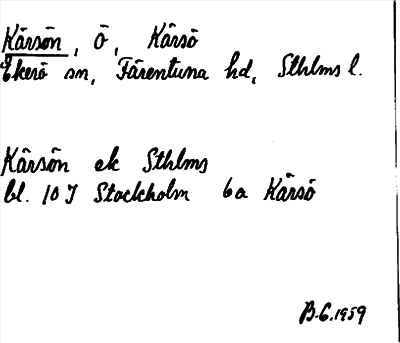 Kärsön, Ö, Kärsö
Ekerö sn, Färentuna hd, Sthlms l.
Kärsön ek Sthlms
bl. 10 I Stockholm 6a Kärsö
B.G.1959